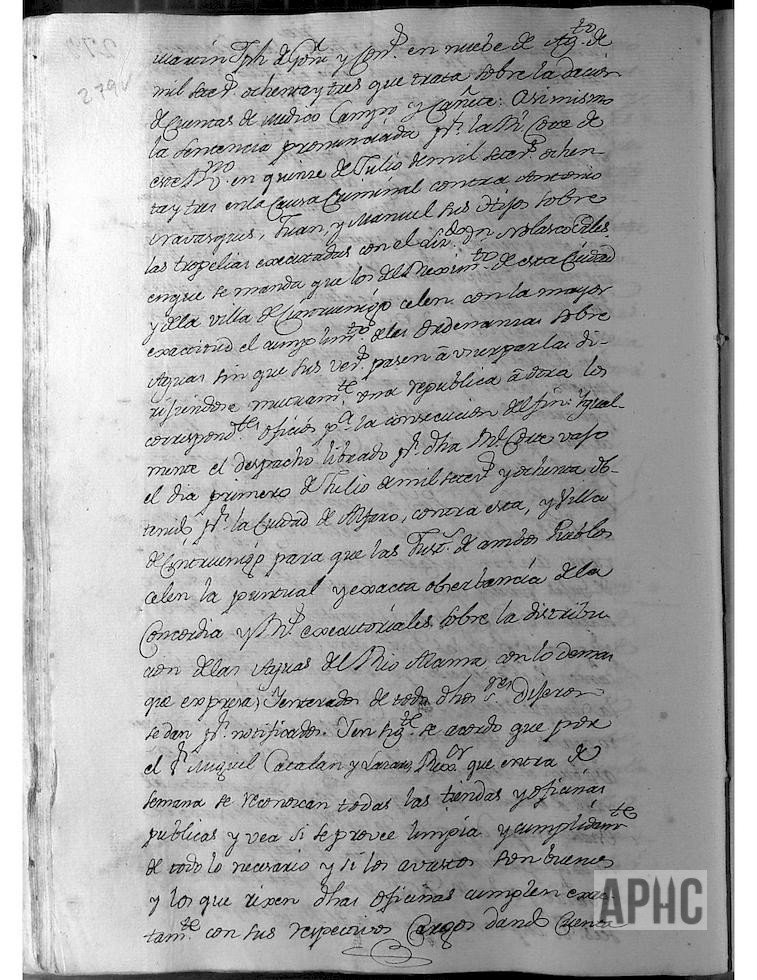 279v
Martin Jph de Gom.l y Com.s en nuebe de Ag.to de
mil setez.s ochenta y tres que trata sobre la dacion
de Cuentas de Medico Campo y Cañete: Asimismo
la sentencia pronunciada p.r la R.l Corte de
este R.no en quinze de Julio de mil setez.s ochen-
ta y tres en la Causa Criminal contra Antonio
Navasques, Juan, y Manuel sus Hijos sobre
las tropelias executadas con el Liz.do Dn Nolasco
en que se manda que los del Rexim.to de esta Ciudad
y de la Villa de Cintruenigo celen con la mayor
exactitud el cumplim.to de las Ordenanzas sobre
Aguas sin que sus vez.s pasen á usurparlas di-
rijiendose mutuam.te una republica á otra los
correspond.tes oficios p.a la consecucion del fin: Igual-
mente el despacho librado p.r dha R.l Corte vajo
el dia primero de Julio de mil setez.s y ochenta ob-
tenido p.r la Ciudad de Alfaro, contra esta, y Villa
de Cintruenigo para que las Just.s de ambos Pueblos
celen la puntual y exacta obserbancia de la
Concordia y R.s executoriales sobre la distribu
cion de las Aguas del Rio Alama con lo demas
que expresa; Ienterados de todo dhos s.res dijeron
se dan p.r notificados. Ien sig.te se acordo que por
el s.r Miguel Catalan y Lazaro, Rex.or que entra de
semana se reconozcan todas las tiendas y oficinas
publicas y vea si se provee limpia y cumplidam.te
de todo lo necesario y si los avastos son buenos
y los que rixen dhas oficinas cumplen exac-
tam.te con sus respectivos Cargos dando Cuenta
APHC